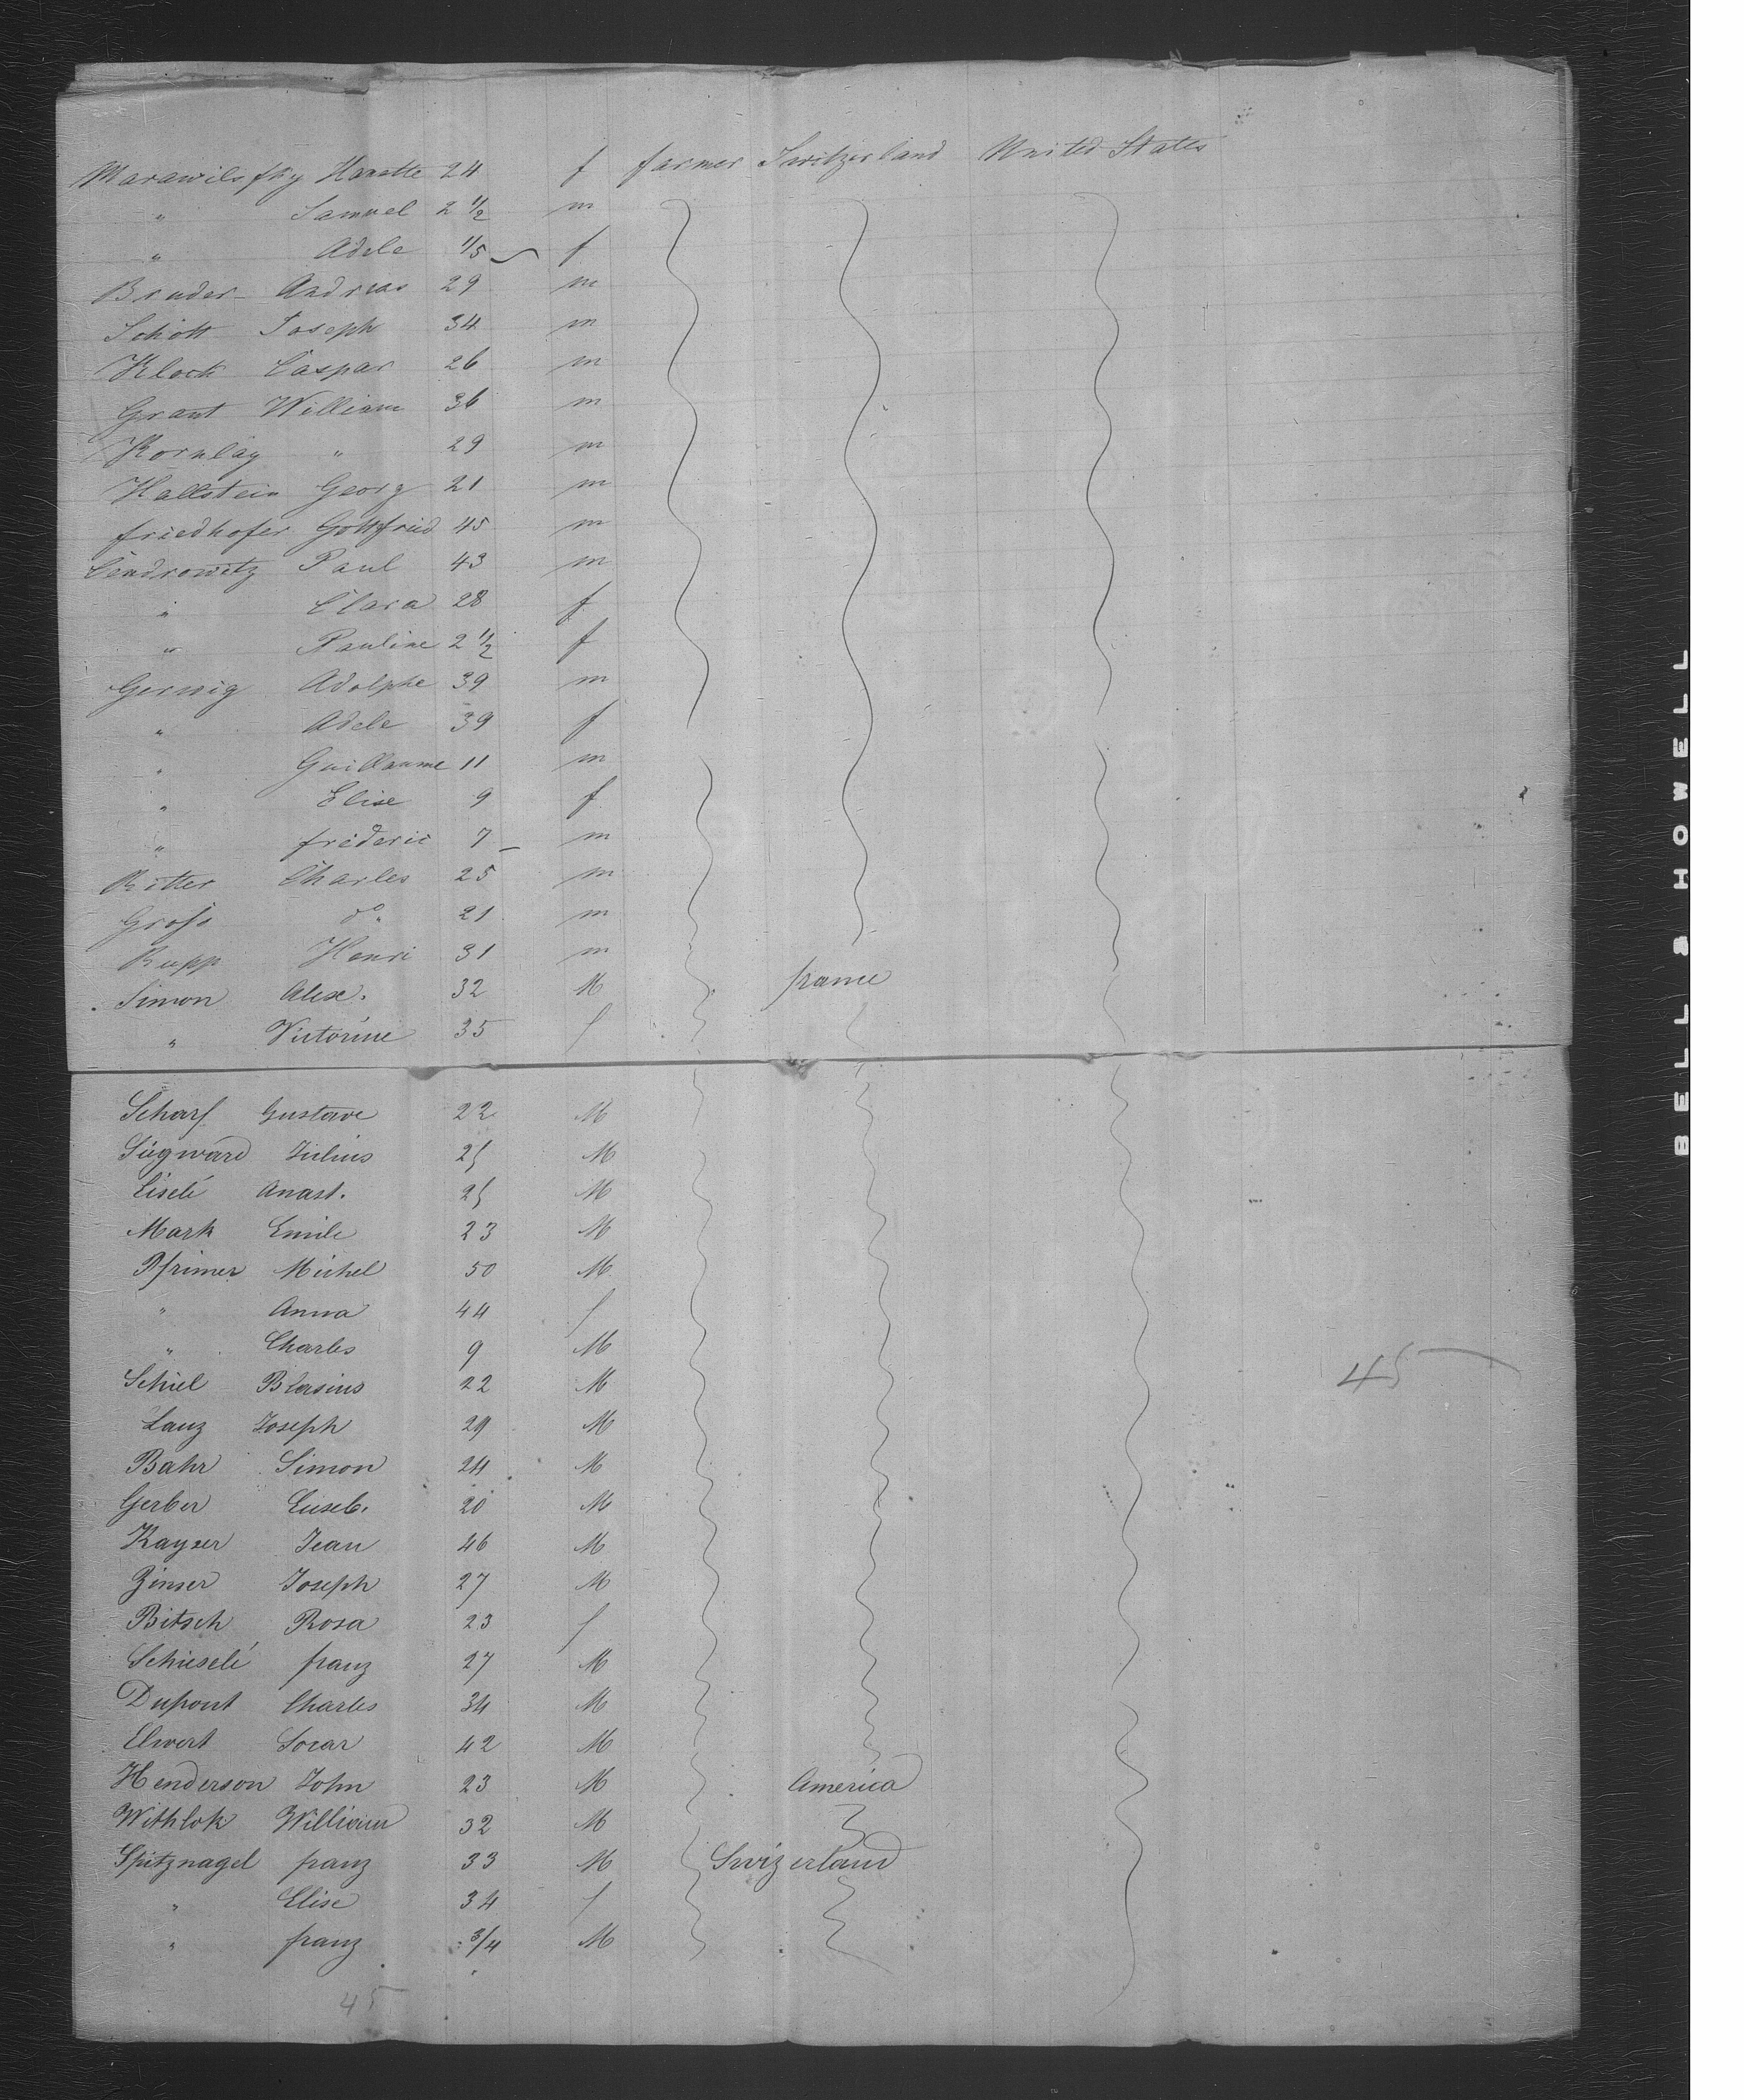 Marawilsky Hanette 24 f farmer Switzerland United States
" Samuel 2 1/2 m
" Adele 1/5 f
Bruder Andreas 29 m
Schott Joseph 34 m
Klock Caspar 26 m
Grant William 36 m
Kornlay " 29 m
Hallstein Georg 21 m
friedhofer Gottfried 45 m
Cendrowitz Paul 43 m
" Clara 28 f
" Pauline 2 1/2 f
Gerwig Adolphe 39 m
" Adele 39 f
" Guillaume 11 m
" Elise 9 f
" fréderic 7 m
Ritter Charles 25 m
Gross do " 21 m
Rupp Henri 31 m
Simon Alex. 32 M france
" Victorine 35 f
Scharf Gustave 22 M
Siegward Julius 25 M
Eiselé Anast. 25 M
Mark Emile 23 M
Pfrimer Michel 50 M
" Anna 44 f
" Charles 9 M
Schiel Blasius 22 M
45
Lanz Joseph 29 M
Bahr Simon 24 M
Gerber Euseb. 20 M
Kayser Jean 46 M
Zinser Joseph 27 M
Bitsch Rosa 23 f
Schieselé franz 27 M
Dupont Charles 34 M
Elwert 42 M
Henderson John 23 M America
Withlok William 32 M
Spitznagel franz 33 M Swizerland
" Elise 34 f
" franz 3/4 M
45
BELL & HOWELL